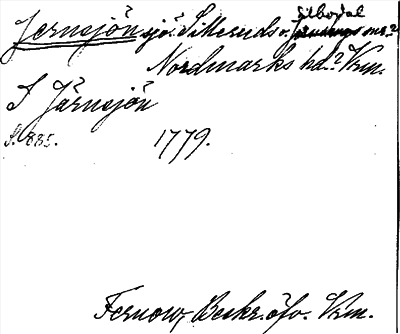 Jernsjön sjö. Silleruds o. Silbodal snr?
Nordmarks hd? Vrm.
S Järnsjön
S. 885. 1779.
Fernow, Beskr. öfv. Vrm.